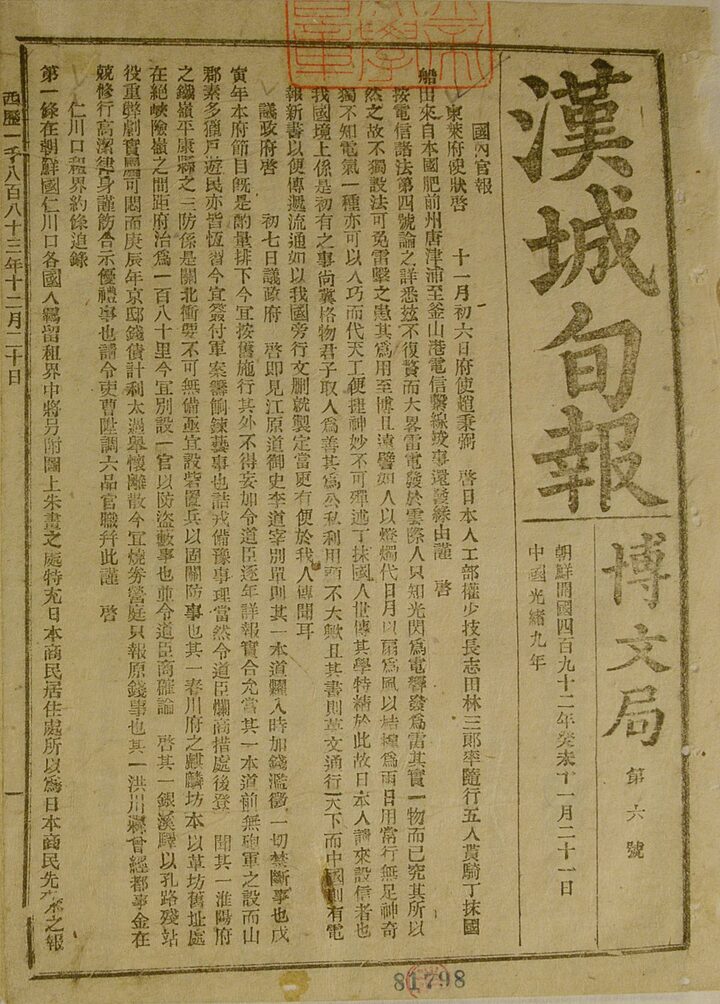 漢城旬報
博文局
第六號
朝鮮開國四百九十二年癸未十一月二十一日
中國光緒九年
國內官報
東萊府使狀啓 十一月初六日府使趙秉弼 啓日本人工部權少技長志田林三郎率隨行五人賃騎丁抹國
船由來自本國肥前州唐津浦至釜山港電信繫線竣事還發緣由謹 啓
按電信諸法第四號論之詳悉玆不復贅而大畧雷電發於雲際人只知光閃爲電響發爲雷其實一物而已究其所以
然之故不獨設法可免雷擊之患其爲用至博且遠譬如人以燈燭代日月以扇爲風以桔槹爲雨日用常行無足神奇
獨不知電氣一種亦可以人巧而代天工便捷神妙不可殫述丁抹國人世傳其學特精於此故日本人請來設信者也
我國境上係是初有之事尙冀格物君子取人爲善其爲公私利用顧不大歟且其書則華文通行天下而中國則有電
報新書以便傳遞流通如以我國旁行文刪就製定當更有便於我人傳聞耳
議政府啓 初七日議政府 啓卽見江原道御史李道宰別單則其一本道糶入時加錢濫徵一切禁斷事也戊
寅年本府節目旣是酌量排下今宜按舊施行其外不得妄加令道臣逐年詳報實合允當其一本道前無砲軍之設而山
郡素多獵戶遊民亦皆恆習今宜簽付軍案籌餉鍊藝事也詰戎備豫事理當然令道臣爛商措處後登 聞其一淮陽府
之鐵嶺平康縣之三防係是關北衝要不可無備亟宜設砦置兵以固關防事也其一春川府之麒麟坊本以革坊舊址處
在絕峽險嶺之間距府治爲一百八十里今宜別設一官以防盜藪事也並令道臣商確論 啓其一銀溪驛以孔路殘站
役重弊劇實屬可悶而庚辰年京邸錢債計利太過擧懷離散今宜燒券營庭只報原錢事也其一洪川縣曾經都事金在
兢修行高潔律身謹飭合示優禮事也請令吏曹陞調六品官職幷此謹 啓
仁川口租界約條追錄
第一條在朝鮮國仁川口各國人羈留租界中將另附圖上朱畫之處特充日本商民居住處所以爲日本商民先來之報
西曆一千八百八十三年十二月二十日
一
81798